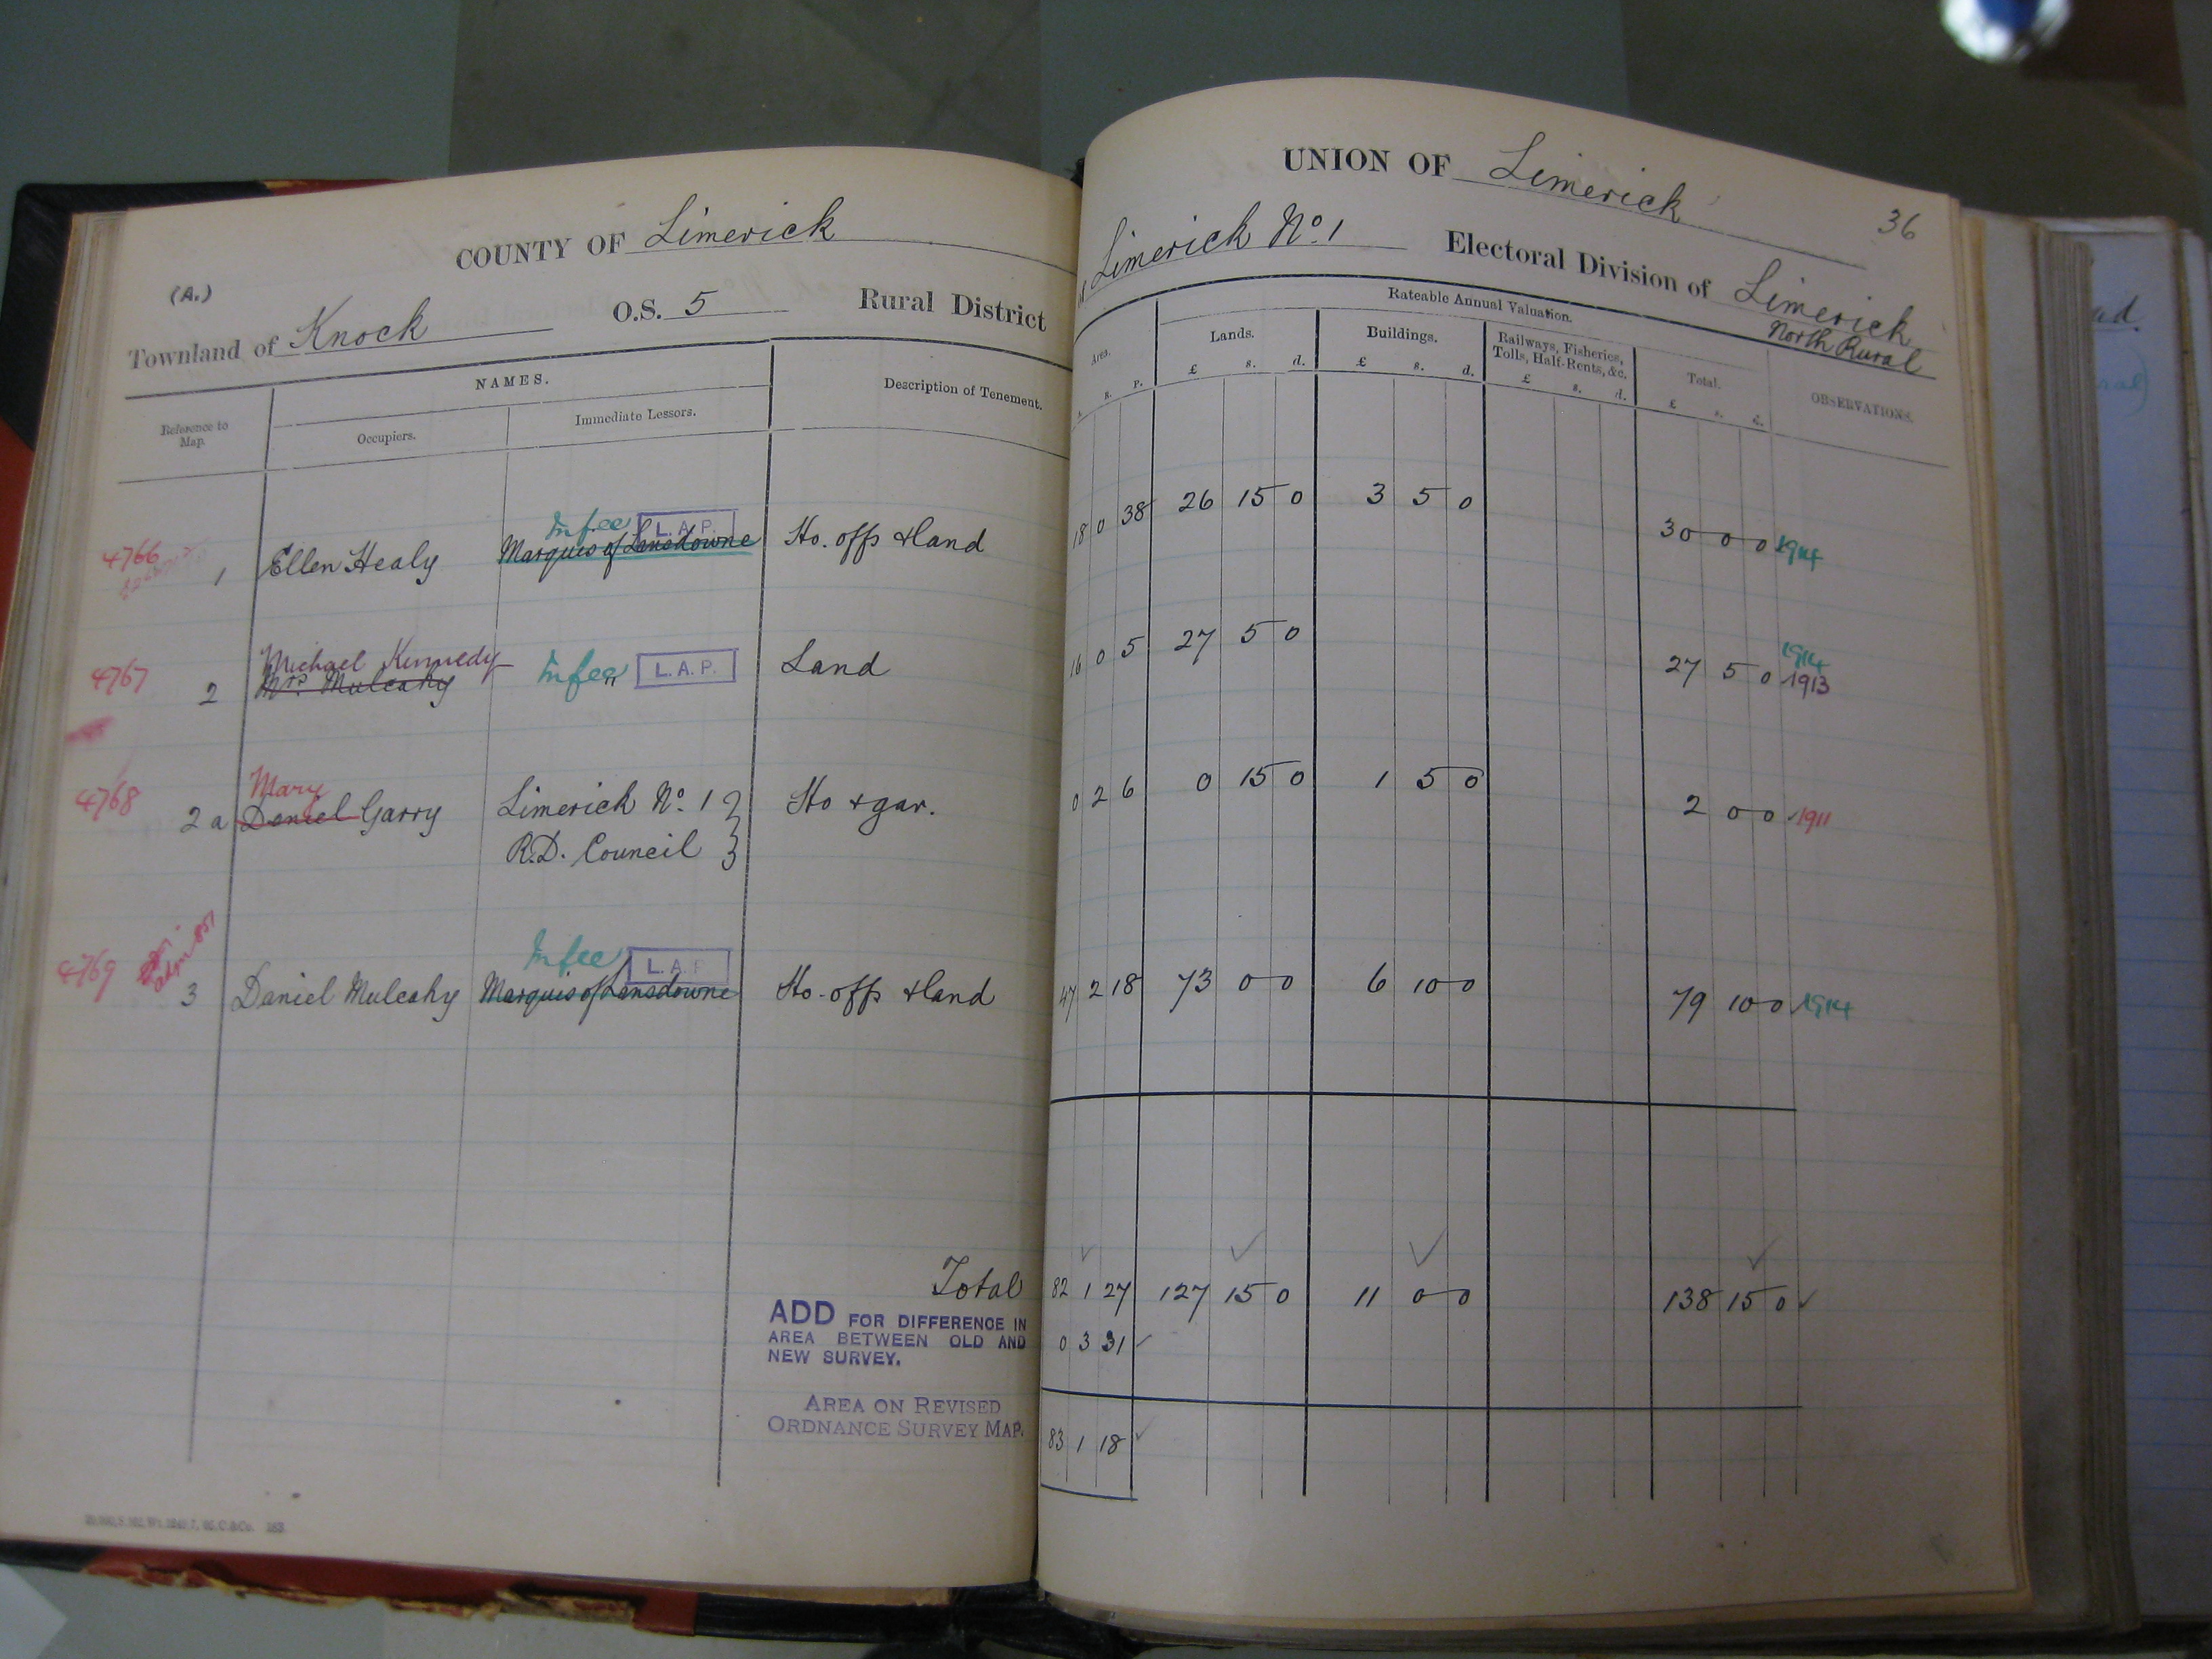 UNION OF Limerick
36
COUNTY OF Limerick
Limerick No. 1 Electoral Division of Limerick North Rural
(A.)
Townland of Knock O.S. 5 Rural District
Rateable Annual Valuation.
NAMES.
Reference to Map.
Occupiers.
Immediate Lessors.
Description of Tenement.
Area.
Lands.
Buildings.
Railways, Fisheries, Tolls, Half-Rents, &c.
Total.
OBSERVATIONS.
R. P. £ s. d. £ s. d. £ s. d. £ s. d.
In fee L.A.P.
4766 1 Ellen Healy Marquis of Lansdowne Ho. offs & land 18 0 38 26 15 0 3 5 0 30 0 0 1914
Michael Kennedy
4767 2 Mrs Mulcahy In fee L.A.P. Land 16 0 5 27 5 0 27 5 0 1914 1913
Mary
4768 2 a Daniel Garry Limerick No. 1 Ho & gar. 0 2 6 0 15 0 1 5 0 2 0 0 1911
R.D. Council
In fee L.A.P.
4769 3 Daniel Mulcahy Marquis of Lansdowne Ho. offs & land 47 2 18 73 0 0 6 10 0 79 10 0 1914
Total 82 1 27 127 15 0 11 0 0 138 15 0
ADD FOR DIFFERENCE IN
AREA BETWEEN OLD AND
NEW SURVEY.
0 3 31
AREA ON REVISED
ORDNANCE SURVEY MAP.
83 1 18